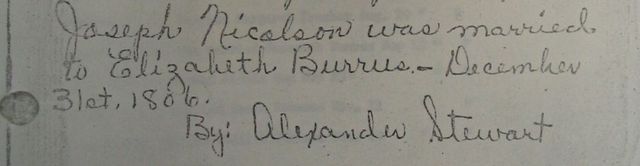 Joseph Nicolson was married
to Elizabeth Burrus. – December
31st, 1806.
By: Alexander Stewart